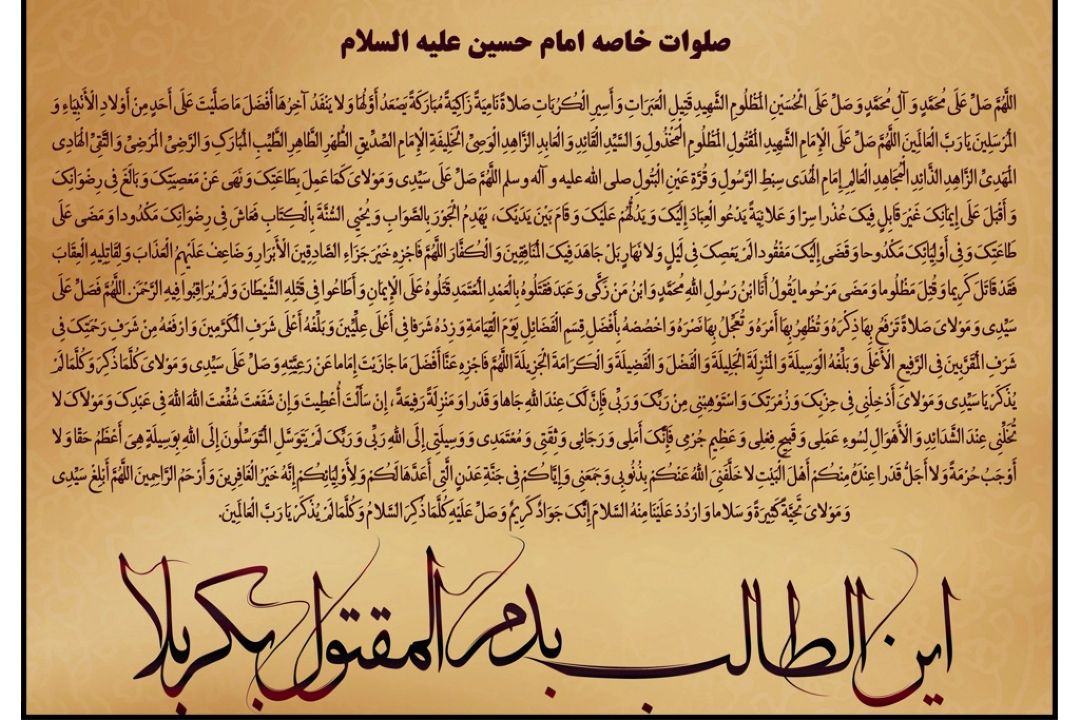 صلوات خاصه امام حسین علیه السلام
اللَّهُمَّ صَلِّ عَلَى مُحَمَّدٍ وَ آلِ مُحَمَّدٍ وَ صَلِّ عَلَى الْحُسَيْنِ الْمَظْلُومِ الشَّهِيدِ قَتِيلِ الْعَبَرَاتِ وَ أَسِيرِ الْكُرُبَاتِ صَلاةً نَامِيَةً زَاكِيَةً مُبَارَكَةً يَصْعَدُ أَوَّلُهَا وَ لا يَنْفَدُ آخِرُهَا أَفْضَلَ مَا صَلَّيْتَ عَلَى أَحَدٍ مِنْ أَوْلادِ الْأَنْبِيَاءِ وَ
الْمُرْسَلِينَ يَا رَبَّ الْعَالَمِينَ اللَّهُمَّ صَلِّ عَلَى الْإِمَامِ الشَّهِيدِ الْمَقْتُولِ الْمَظْلُومِ الْمَخْذُولِ وَ السَّيِّدِ الْقَائِدِ وَ الْعَابِدِ الزَّاهِدِ الْوَصِيِّ الْخَلِيفَةِ الْإِمَامِ الصِّدِّيقِ الطُّهْرِ الطَّاهِرِ الطَّيِّبِ الْمُبَارَكِ وَ الرَّضِيِّ الْمَرْضِيِّ وَ التَّقِيِّ الْهَادِي
الْمَهْدِيِّ الزَّاهِدِ الذَّائِدِ الْمُجَاهِدِ الْعَالِمِ إِمَامِ الْهُدَى سِبْطِ الرَّسُولِ وَ قُرَّةِ عَيْنِ الْبَتُولِ صلى الله عليه و آله و سلم اللَّهُمَّ صَلِّ عَلَى سَيِّدِي وَ مَوْلايَ كَمَا عَمِلَ بِطَاعَتِكَ وَ نَهَى عَنْ مَعْصِيَتِكَ وَ بَالَغَ فِي رِضْوَانِكَ
وَ أَقْبَلَ عَلَى إِيمَانِكَ غَيْرَ قَابِلٍ فِيكَ عُذْرا سِرّا وَ عَلانِيَةً يَدْعُو الْعِبَادَ إِلَيْكَ وَ يَدُلُّهُمْ عَلَيْكَ وَ قَامَ بَيْنَ يَدَيْكَ، يَهْدِمُ الْجَوْرَ بِالصَّوَابِ وَ يُحْيِي السُّنَّةَ بِالْكِتَابِ فَعَاشَ فِي رِضْوَانِكَ مَكْدُودا وَ مَضَى عَلَى
طَاعَتِكَ وَ فِي أَوْلِيَائِكَ مَكْدُوحا وَ قَضَى إِلَيْكَ مَفْقُودا لَمْ يَعْصِكَ فِي لَيْلٍ وَ لا نَهَارٍ بَلْ جَاهَدَ فِيكَ الْمُنَافِقِينَ وَ الْكُفَّارَ اللَّهُمَّ فَاجْزِهِ خَيْرَ جَزَاءِ الصَّادِقِينَ الْأَبْرَارِ وَ ضَاعِفْ عَلَيْهِمُ الْعَذَابَ وَ لِقَاتِلِيهِ الْعِقَابَ
فَقَدْ قَاتَلَ كَرِيما وَ قُتِلَ مَظْلُوما وَ مَضَى مَرْحُوما يَقُولُ أَنَا ابْنُ رَسُولِ اللَّهِ مُحَمَّدٍ وَ ابْنُ مَنْ زَكَّى وَ عَبَدَ فَقَتَلُوهُ بِالْعَمْدِ الْمُعْتَمَدِ قَتَلُوهُ عَلَى الْإِيمَانِ وَ أَطَاعُوا فِي قَتْلِهِ الشَّيْطَانَ وَ لَمْ يُرَاقِبُوا فِيهِ الرَّحْمَنَ. اللَّهُمَّ فَصَلِّ عَلَى
سَيِّدِي وَ مَوْلايَ صَلاةً تَرْفَعُ بِهَا ذِكْرَهُ وَ تُظْهِرُ بِهَا أَمْرَهُ وَ تُعَجِّلُ بِهَا نَصْرَهُ وَ اخْصُصْهُ بِأَفْضَلِ قِسَمِ الْفَضَائِلِ يَوْمَ الْقِيَامَةِ وَ زِدْهُ شَرَفا فِي أَعْلَى عِلِّيِّينَ وَ بَلِّغْهُ أَعْلَى شَرَفِ الْمُكَرَّمِينَ وَ ارْفَعْهُ مِنْ شَرَفِ رَحْمَتِكَ فِي
شَرَفِ الْمُقَرَّبِينَ فِي الرَّفِيعِ الْأَعْلَى وَ بَلِّغْهُ الْوَسِيلَةَ وَ الْمَنْزِلَةَ الْجَلِيلَةَ وَ الْفَضْلَ وَ الْفَضِيلَةَ وَ الْكَرَامَةَ الْجَزِيلَةَ اللَّهُمَّ فَاجْزِهِ عَنَّا أَفْضَلَ مَا جَازَيْتَ إِمَاما عَنْ رَعِيَّتِهِ وَ صَلِّ عَلَى سَيِّدِي وَ مَوْلايَ كُلَّمَا ذُكِرَ وَ كُلَّمَا لَمْ
يُذْكَرْ يَا سَيِّدِي وَ مَوْلايَ أَدْخِلْنِي فِي حِزْبِكَ وَ زُمْرَتِكَ وَ اسْتَوْهِبْنِي مِنْ رَبِّكَ وَ رَبِّي فَإِنَّ لَكَ عِنْدَ اللَّهِ جَاها وَ قَدْرا وَ مَنْزِلَةً رَفِيعَةً ، إِنْ سَأَلْتَ أُعْطِيتَ وَ إِنْ شَفَعْتَ شُفِّعْتَ اللَّهَ اللَّهَ فِي عَبْدِكَ وَ مَوْلاكَ لا
تُخَلِّنِي عِنْدَ الشَّدَائِدِ وَ الْأَهْوَالِ لِسُوءِ عَمَلِي وَ قَبِيحِ فِعْلِي وَ عَظِيمِ جُرْمِي فَإِنَّكَ أَمَلِي وَ رَجَائِي وَ ثِقَتِي وَ مُعْتَمَدِي وَ وَسِيلَتِي إِلَى اللَّهِ رَبِّي وَ رَبِّكَ لَمْ يَتَوَسَّلِ الْمُتَوَسِّلُونَ إِلَى اللَّهِ بِوَسِيلَةٍ هِيَ أَعْظَمُ حَقّا وَ لا
أَوْجَبُ حُرْمَةً وَ لا أَجَلُّ قَدْرا عِنْدَهُ مِنْكُمْ أَهْلَ الْبَيْتِ لا خَلَّفَنِيَ اللَّهُ عَنْكُمْ بِذُنُوبِي وَ جَمَعَنِي وَ إِيَّاكُمْ فِي جَنَّةِ عَدْنٍ الَّتِي أَعَدَّهَا لَكُمْ وَ لِأَوْلِيَائِكُمْ إِنَّهُ خَيْرُ الْغَافِرِينَ وَ أَرْحَمُ الرَّاحِمِينَ اللَّهُمَّ أَبْلِغْ سَيِّدِي
وَ مَوْلايَ تَحِيَّةً كَثِيرَةً وَ سَلاما وَ ارْدُدْ عَلَيْنَا مِنْهُ السَّلامَ إِنَّكَ جَوَادٌ كَرِيمٌ وَ صَلِّ عَلَيْهِ كُلَّمَا ذُكِرَ السَّلامُ وَ كُلَّمَا لَمْ يُذْكَرْ يَا رَبَّ الْعَالَمِينَ.
این الطالب بدم المقتول بکربلا